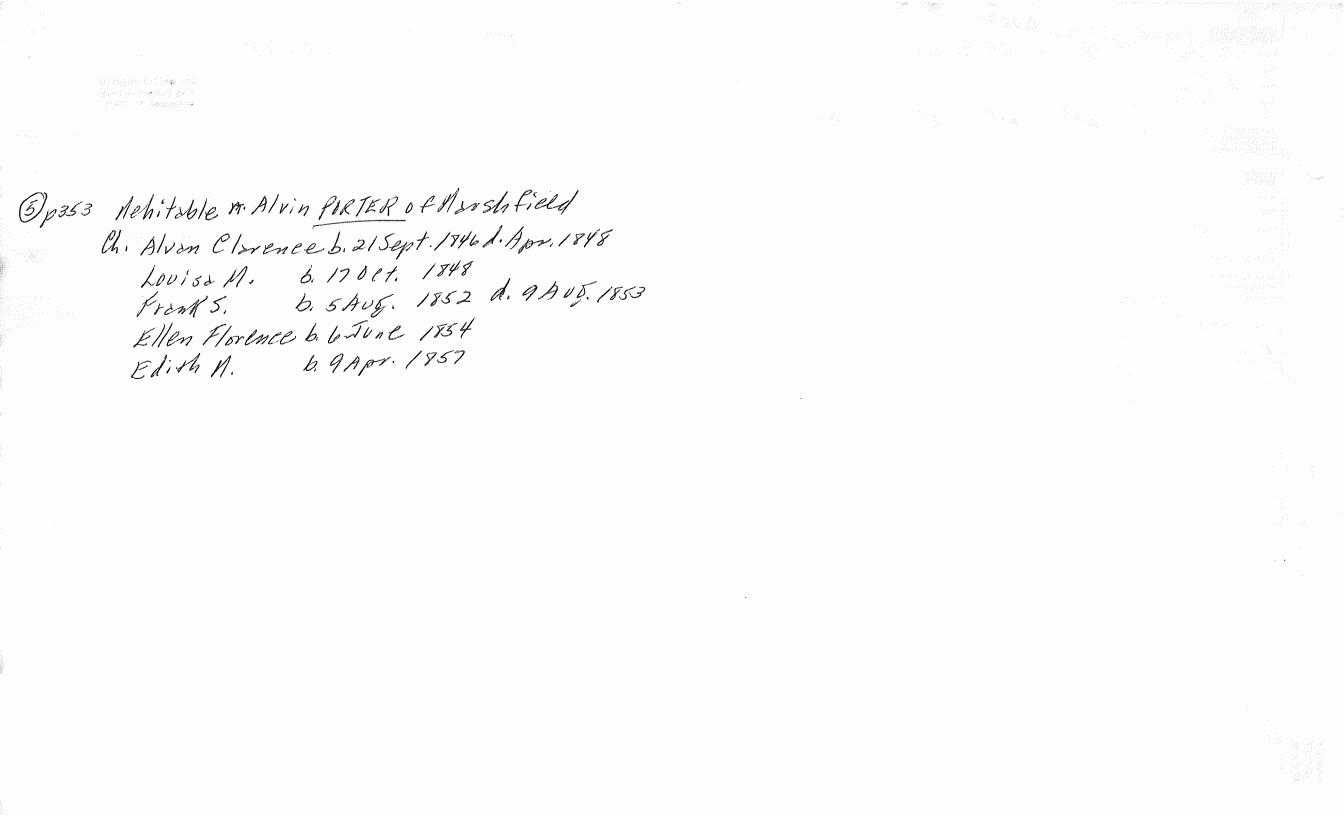 ⑤ p353 Mehitable m. Alvin PORTER of Marshfield
Ch. Alvan Clarence b. 21 Sept. 1846 d. Apr. 1848
Louisa M. b. 17 Oct. 1848
Frank S. b. 5 Aug. 1852 d. 9 Aug. 1853
Ellen Florence b. 6 June 1854
Edith M. b. 9 Apr. 1857